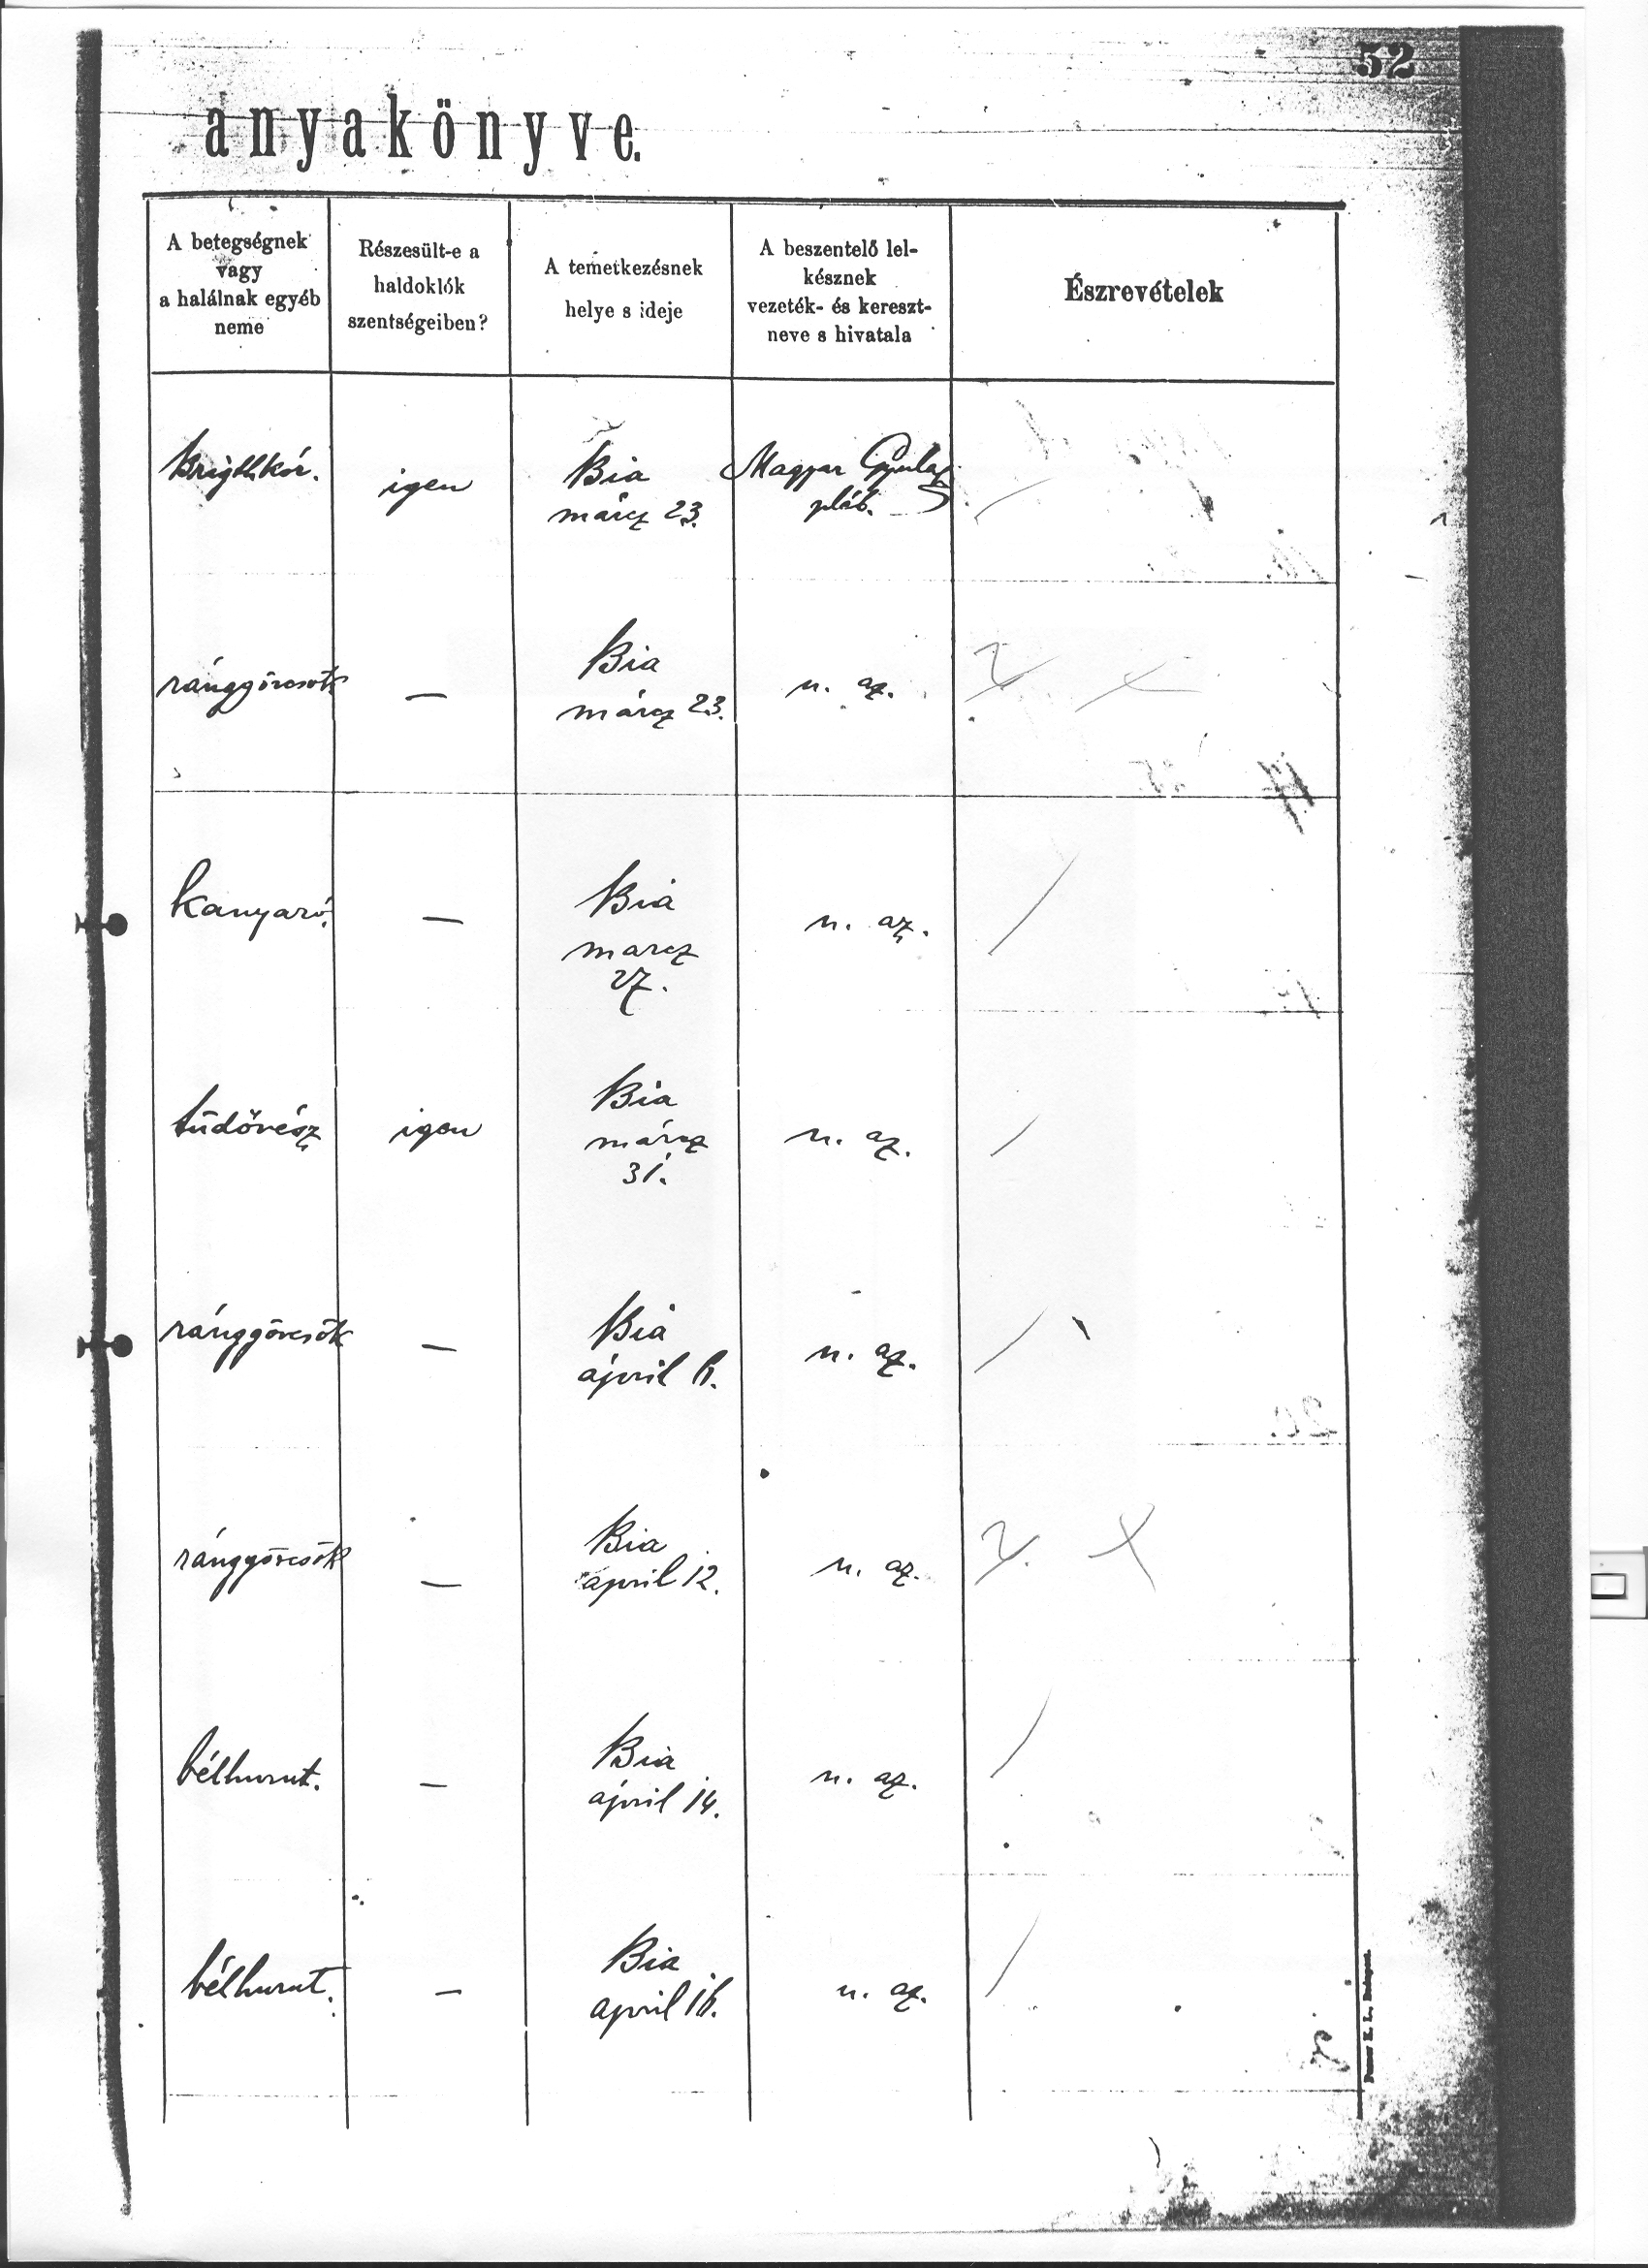 52
anyakönyve.
A betegségnek
vagy
a halálnak egyéb
neme
Részesült-e a
haldoklók
szentségeiben?
A temetkezésnek
helye s ideje
A beszentelő lel-
késznek
vezeték- és kereszt-
neve s hivatala
Észrevételek
Brightkór.
igen
Bia
márcz 23.
Magyar Gyula
pléb.
ránggörcsök
—
Bia
márcz 23.
u. az.
kanyaró.
—
Bia
marcz
27.
u. az.
tüdővész
igen
Bia
márcz
31.
u. az.
ránggörcsök
—
Bia
ápril 6.
u. az.
ránggörcsök
—
Bia
april 12.
u. az.
bélhurut.
—
Bia
ápril 14.
u. az.
bélhurut.
—
Bia
april 16.
u. az.